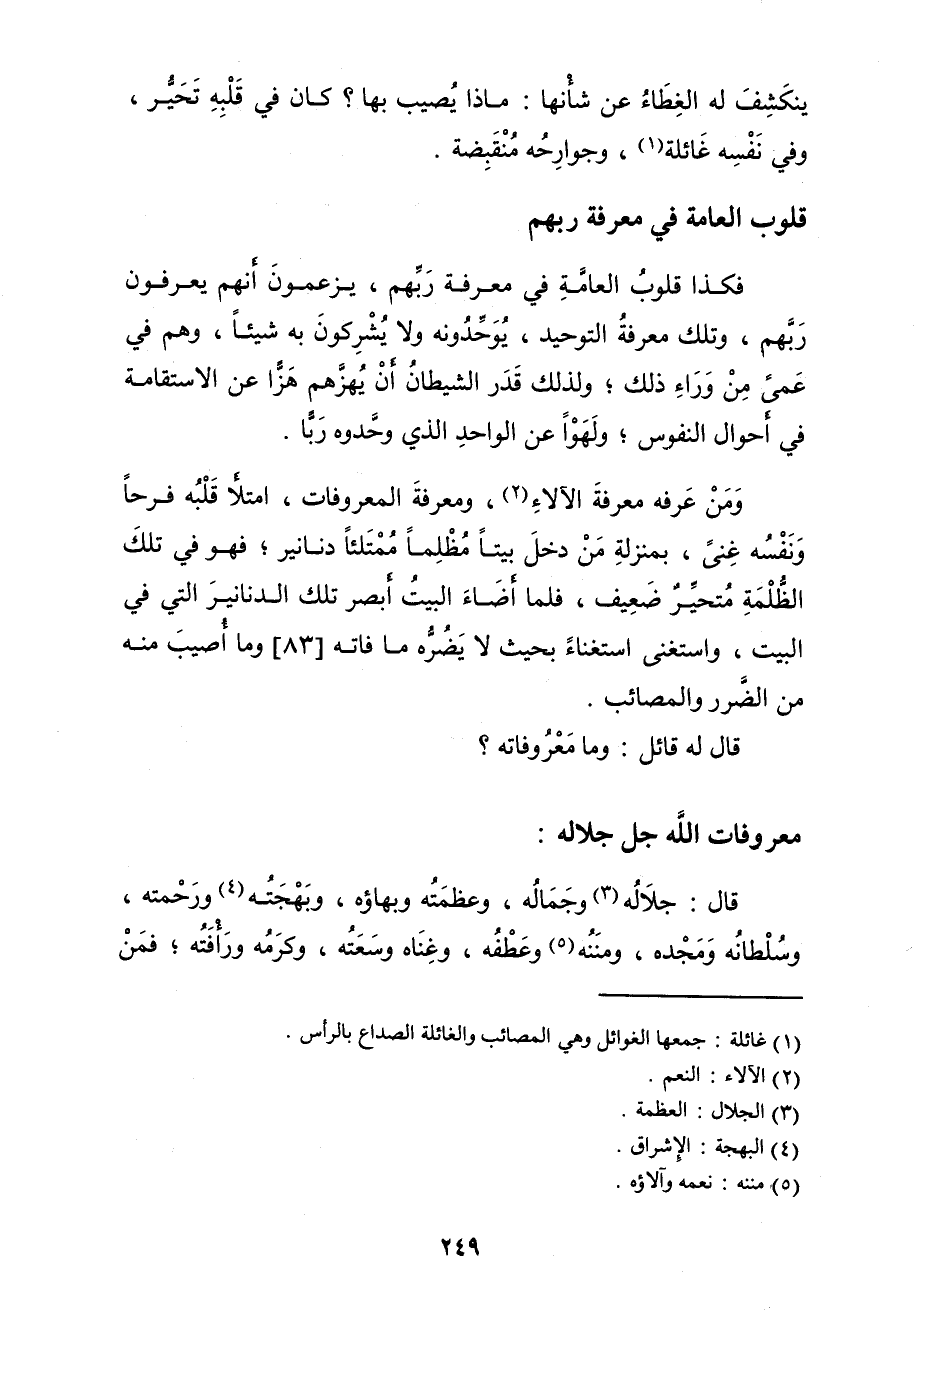 ينكَشِفَ له الغِطَاءُ عن شأْنها : ماذا يُصيب بها ؟ كان في قَلْبِهِ تَحَيُّر ،
وفي نَفْسِه غَائلة(١) ، وجوارِحُه مُنْقَبِضة .
قلوب العامة في معرفة ربهم
فكذا قلوبُ العامَّةِ في معرفة رَبِّهم ، يزعمونَ أَنهم يعرفون
رَبَّهم ، وتلك معرفةُ التوحيد ، يُوَحِّدُونه ولا يُشْرِكونَ به شيئاً ، وهم في
عَمىً مِنْ وَرَاءِ ذلك ؛ ولذلك قَدَر الشيطانُ أَنْ يُهزَّهم هَزًّا عن الاستقامة
في أَحوال النفوس ؛ ولَهَوْاً عن الواحدِ الذي وحَّدوه رَبًّا .
وَمَنْ عَرفه معرفةَ الآلاءِ(٢) ، ومعرفةَ المعروفات ، امتلأَ قَلْبُه فرحاً
وَنَفْسُه غِنىً ، بمنزلةِ مَنْ دخلَ بيتاً مُظْلِماً مُمْتَلئاً دنانير ؛ فهو في تلكَ
الظُّلْمَةِ مُتحيِّرٌ ضَعِيف ، فلما أَضَاءَ البيتُ أَبصر تلك الدنانيرَ التي في
البيت ، واستغنى استغناءً بحيث لا يَضُرُّه ما فاته [٨٣] وما أُصيبَ منه
من الضَّرر والمصائب .
قال له قائل : وما مَعْرُوفاته ؟
معروفات اللَّه جل جلاله :
قال : جلَالُه(٣) وجَمَالُه ، وعظمَتُه وبهاؤه ، وبَهْجَتُه(٤) ورَحْمته ،
وسُلْطانُه وَمَجْده ، ومنَنُه(٥) وعَطْفُه ، وغِنَاه وسَعَتُه ، وكرَمُه ورَأْفَتُه ؛ فمَنْ
(١) غائلة : جمعها الغوائل وهي المصائب والغائلة الصداع بالرأس .
(٢) الآلاء : النعم .
(٣) الجلال : العظمة .
(٤) البهجة : الإشراق .
(٥) مننه : نعمه وآلاؤه .
٢٤٩